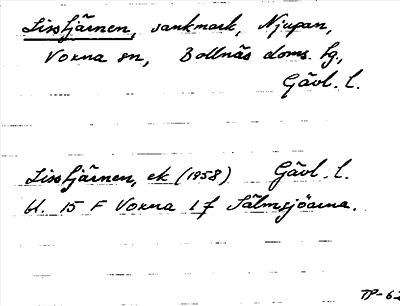 Lisstjärnen, sankmark, Njupan,
Voxna sn, Bollnäs doms. hg,
Gävl. l.
Lisstjärnen, ek (1958) Gävl. l.
bl. 15 F Voxna 1 f Sälmsjöarna.
TP-62